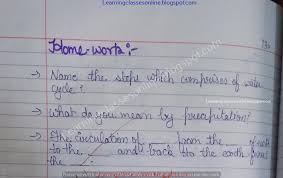 Learningclassesonline.blogspot.com
Home-work:-
→ Name the steps which comprises of water
cycle?
→ What do you mean by precipitation?
→ The circulation of ____ from the ____ of earth
to the ____ and back to the earth forms
the ____